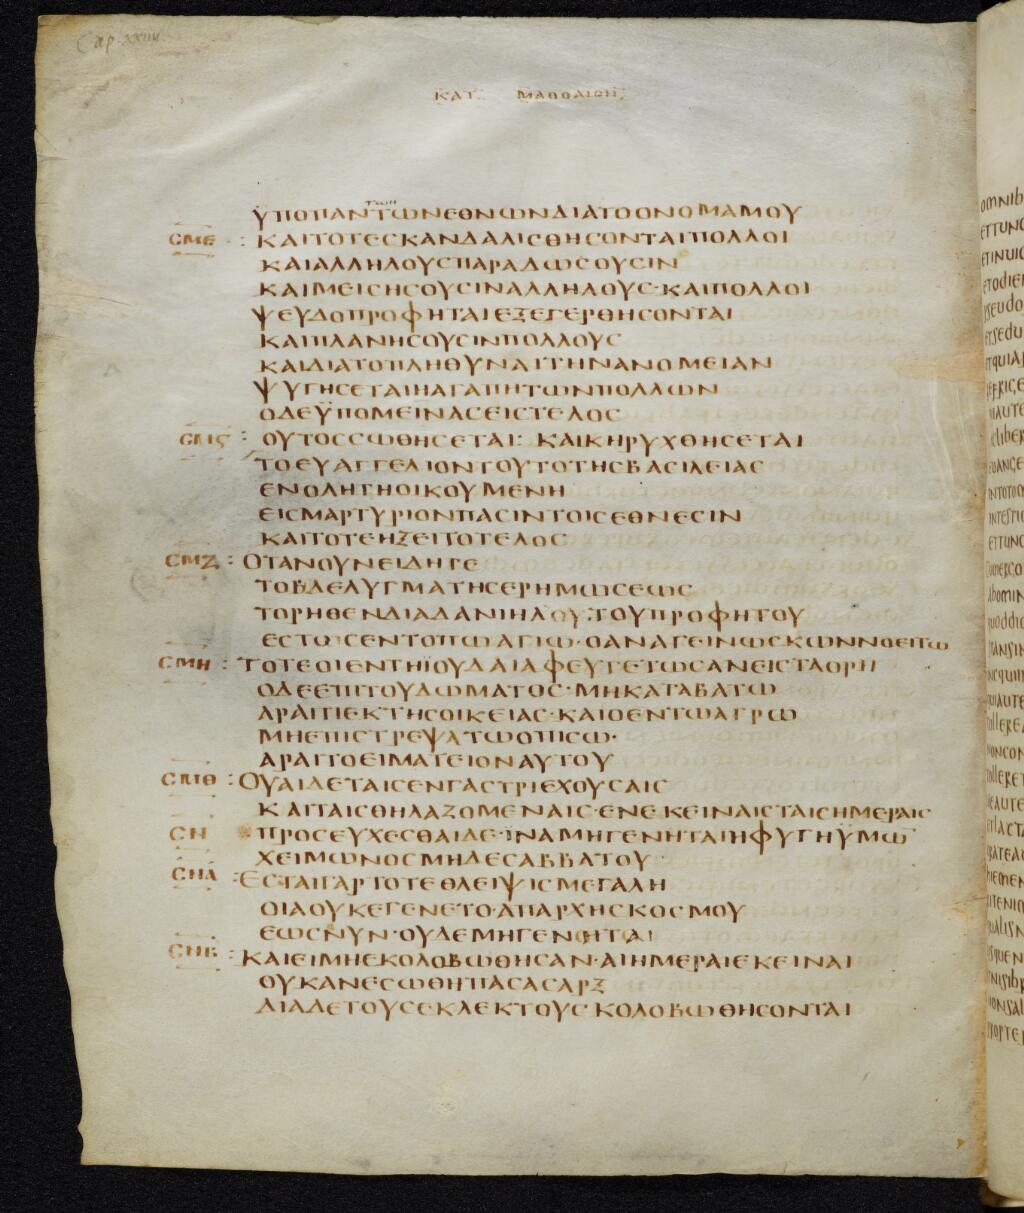 Cap. xxiiii
ΚΑΤ ΜΑΘΘΑΙΟΝ
ΤΩΝ
ΫΠΟΠΑΝΤΩΝΕΘΝΩΝΔΙΑΤΟΟΝΟΜΑΜΟΥ
СΜΕ : ΚΑΙΤΟΤΕСΚΑΝΔΑΛΙСΘΗСΟΝΤΑΙΠΟΛΛΟΙ
ΚΑΙΑΛΛΗΛΟΥСΠΑΡΑΔΩСΟΥСΙΝ
ΚΑΙΜΕΙСΗСΟΥСΙΝΑΛΛΗΛΟΥС·ΚΑΙΠΟΛΛΟΙ
ΨΕΥΔΟΠΡΟΦΗΤΑΙΕΞΕΓΕΡΘΗСΟΝΤΑΙ
ΚΑΙΠΛΑΝΗСΟΥСΙΝΠΟΛΛΟΥС
ΚΑΙΔΙΑΤΟΠΛΗΘΥΝΑΙΤΗΝΑΝΟΜΕΙΑΝ
ΨΥΓΗСΕΤΑΙΗΑΓΑΠΗΤΩΝΠΟΛΛΩΝ
ΟΔΕΫΠΟΜΕΙΝΑСΕΙСΤΕΛΟС
СΜϚ : ΟΥΤΟССΩΘΗСΕΤΑΙ: ΚΑΙΚΗΡΥΧΘΗСΕΤΑΙ
ΤΟΕΥΑΓΓΕΛΙΟΝΤΟΥΤΟΤΗСΒΑСΙΛΕΙΑС
ΕΝΟΛΗΤΗΟΙΚΟΥΜΕΝΗ
ΕΙСΜΑΡΤΥΡΙΟΝΠΑСΙΝΤΟΙСΕΘΝΕСΙΝ
ΚΑΙΤΟΤΕΗΞΕΙΤΟΤΕΛΟС
СΜΖ : ΟΤΑΝΟΥΝΕΙΔΗΤΕ
ΤΟΒΔΕΛΥΓΜΑΤΗСΕΡΗΜΩСΕΩС
ΤΟΡΗΘΕΝΔΙΑΔΑΝΙΗΛΟΥ:ΤΟΥΠΡΟΦΗΤΟΥ
ΕСΤΩСΕΝΤΟΠΩΑΓΙΩ·ΟΑΝΑΓΕΙΝΩСΚΩΝΝΟΕΙΤΩ
СΜΗ : ΤΟΤΕΟΙΕΝΤΗΪΟΥΔΑΙΑΦΕΥΓΕΤΩСΑΝΕΙСΤΑΟΡΗ
ΟΔΕΕΠΙΤΟΥΔΩΜΑΤΟС·ΜΗΚΑΤΑΒΑΤΩ
ΑΡΑΙΤΙΕΚΤΗСΟΙΚΕΙΑС·ΚΑΙΟΕΝΤΩΑΓΡΩ
ΜΗΕΠΙСΤΡΕΨΑΤΩΟΠΙСΩ·
ΑΡΑΙΤΟΕΙΜΑΤΕΙΟΝΑΥΤΟΥ
СΜΘ : ΟΥΑΙΔΕΤΑΙСΕΝΓΑСΤΡΙΕΧΟΥСΑΙС
ΚΑΙΤΑΙСΘΗΛΑΖΟΜΕΝΑΙС·ΕΝΕΚΕΙΝΑΙСΤΑΙСΗΜΕΡΑΙС
СΝ ΠΡΟСΕΥΧΕСΘΑΙΔΕ·ΪΝΑΜΗΓΕΝΗΤΑΙΗΦΥΓΗΫΜΩ̅
ΧΕΙΜΩΝΟСΜΗΔΕСΑΒΒΑΤΟΥ
СΝΑ : ΕСΤΑΙΓΑΡΤΟΤΕΘΛΕΙΨΙСΜΕΓΑΛΗ
ΟΙΑΟΥΚΕΓΕΝΕΤΟ·ΑΠΑΡΧΗСΚΟСΜΟΥ
ΕΩСΝΥΝ·ΟΥΔΕΜΗΓΕΝΟΙΤΑΙ
СΝΒ : ΚΑΙΕΙΜΗΕΚΟΛΟΒΩΘΗСΑΝ·ΑΙΗΜΕΡΑΙΕΚΕΙΝΑΙ
ΟΥΚΑΝΕСΩΘΗΠΑСΑСΑΡΞ
ΔΙΑΔΕΤΟΥСΕΚΛΕΚΤΟΥС·ΚΟΛΟΒΩΘΗСΟΝΤΑΙ